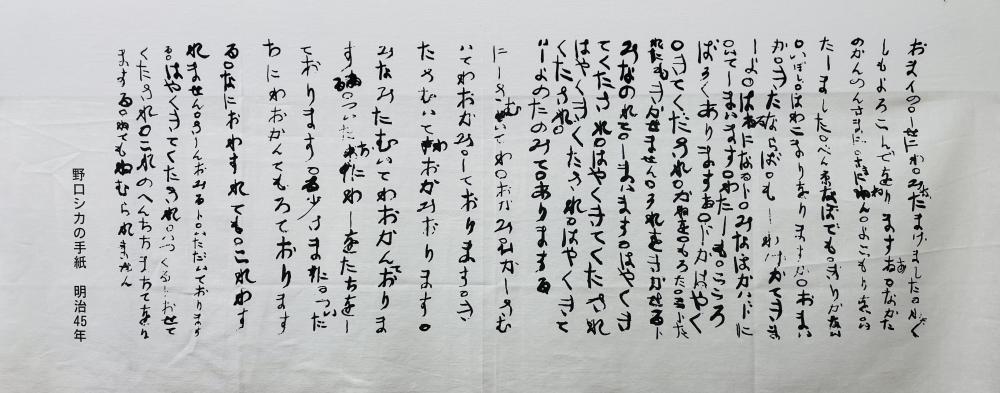 おまイの○しせにわ○みなたまけました○わたくしもよろこんでをりまする○なかた
のかんのんさまに○さまにねん○よこもりを○いたしました○べん京なぼでも○きりかない
○いぼし○わこまりをりますか○おまいか○きたならば○もしわけかてきましよ○
はるになるト○みなほかいドに○いてしまいます○わたしも○こころぼそくあります
ドか○はやく○きてくだされ○
かねを○もろた○こト○たれにもきかせません○それをきかせるト○
みなのれて○しまいます○はやくき
てくたされ○はやくきてくたされ
はやくきてくたされ○はやくきて
くたされ○
いしよのたのみて○ありまする
にしさむいてわ○おかみ○ひかしさむ
いてわおかみ○しております○き
たさむいてわおかみおります○
みなみたむいてわおかんておりま
す○ついたちにわしをたちをし
ております○
ちにわおかんてもろております
る○なにおわすれても○これわす
れません○さしんおみるト○いたたいております
る○はやくきてくたされ○いつくるトおせて
くたされ○これのへんちちまちてをり
まする○ねてもねむられません
野口シカの手紙　明治45年